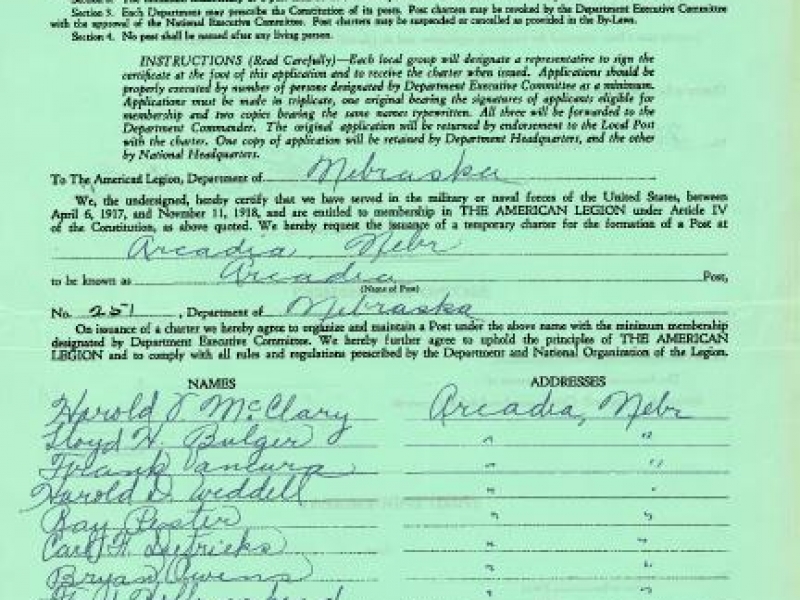 Section 3. Each Department may prescribe the Constitution of its posts. Post charters may be revoked by the Department Executive Committee
with the approval of the National Executive Committee. Post charters may be suspended or cancelled as provided in the By-Laws.
Section 4. No post shall be named after any living person.
INSTRUCTIONS (Read Carefully)—Each local group will designate a representative to sign the
certificate at the foot of this application and to receive the charter when issued. Applications should be
properly executed by number of persons designated by Department Executive Committee at a minimum.
Applications must be made in triplicate, one original bearing the signatures of applicants eligible for
membership and two copies bearing the same names typewritten. All three will be forwarded to the
Department Commander. The original application will be returned by endorsement to the Local Post
with the charter. One copy of application will be retained by Department Headquarters, and the other
by National Headquarters.
To The American Legion, Department of Nebraska
We, the undersigned, hereby certify that we have served in the military or naval forces of the United States, between
April 6, 1917, and November 11, 1918, and are entitled to membership in THE AMERICAN LEGION under Article IV
of the Constitution, as above quoted. We hereby request the issuance of a temporary charter for the formation of a Post at
Arcadia, Nebr
to be known as Arcadia Post,
(Name of Post)
No. 251, Department of Nebraska
On issuance of a charter we hereby agree to organize and maintain a Post under the above name with the minimum membership
designated by Department Executive Committee. We hereby further agree to uphold the principles of THE AMERICAN
LEGION and to comply with all rules and regulations prescribed by the Department and National Organization of the Legion.
NAMES ADDRESSES
Harold D McClary Arcadia, Nebr
Lloyd H. Bulger " "
Frank Vancura " "
Harold D. Weddell " "
Ray Pester " "
Carl H. Dietrichs " "
Bryan Owens " "